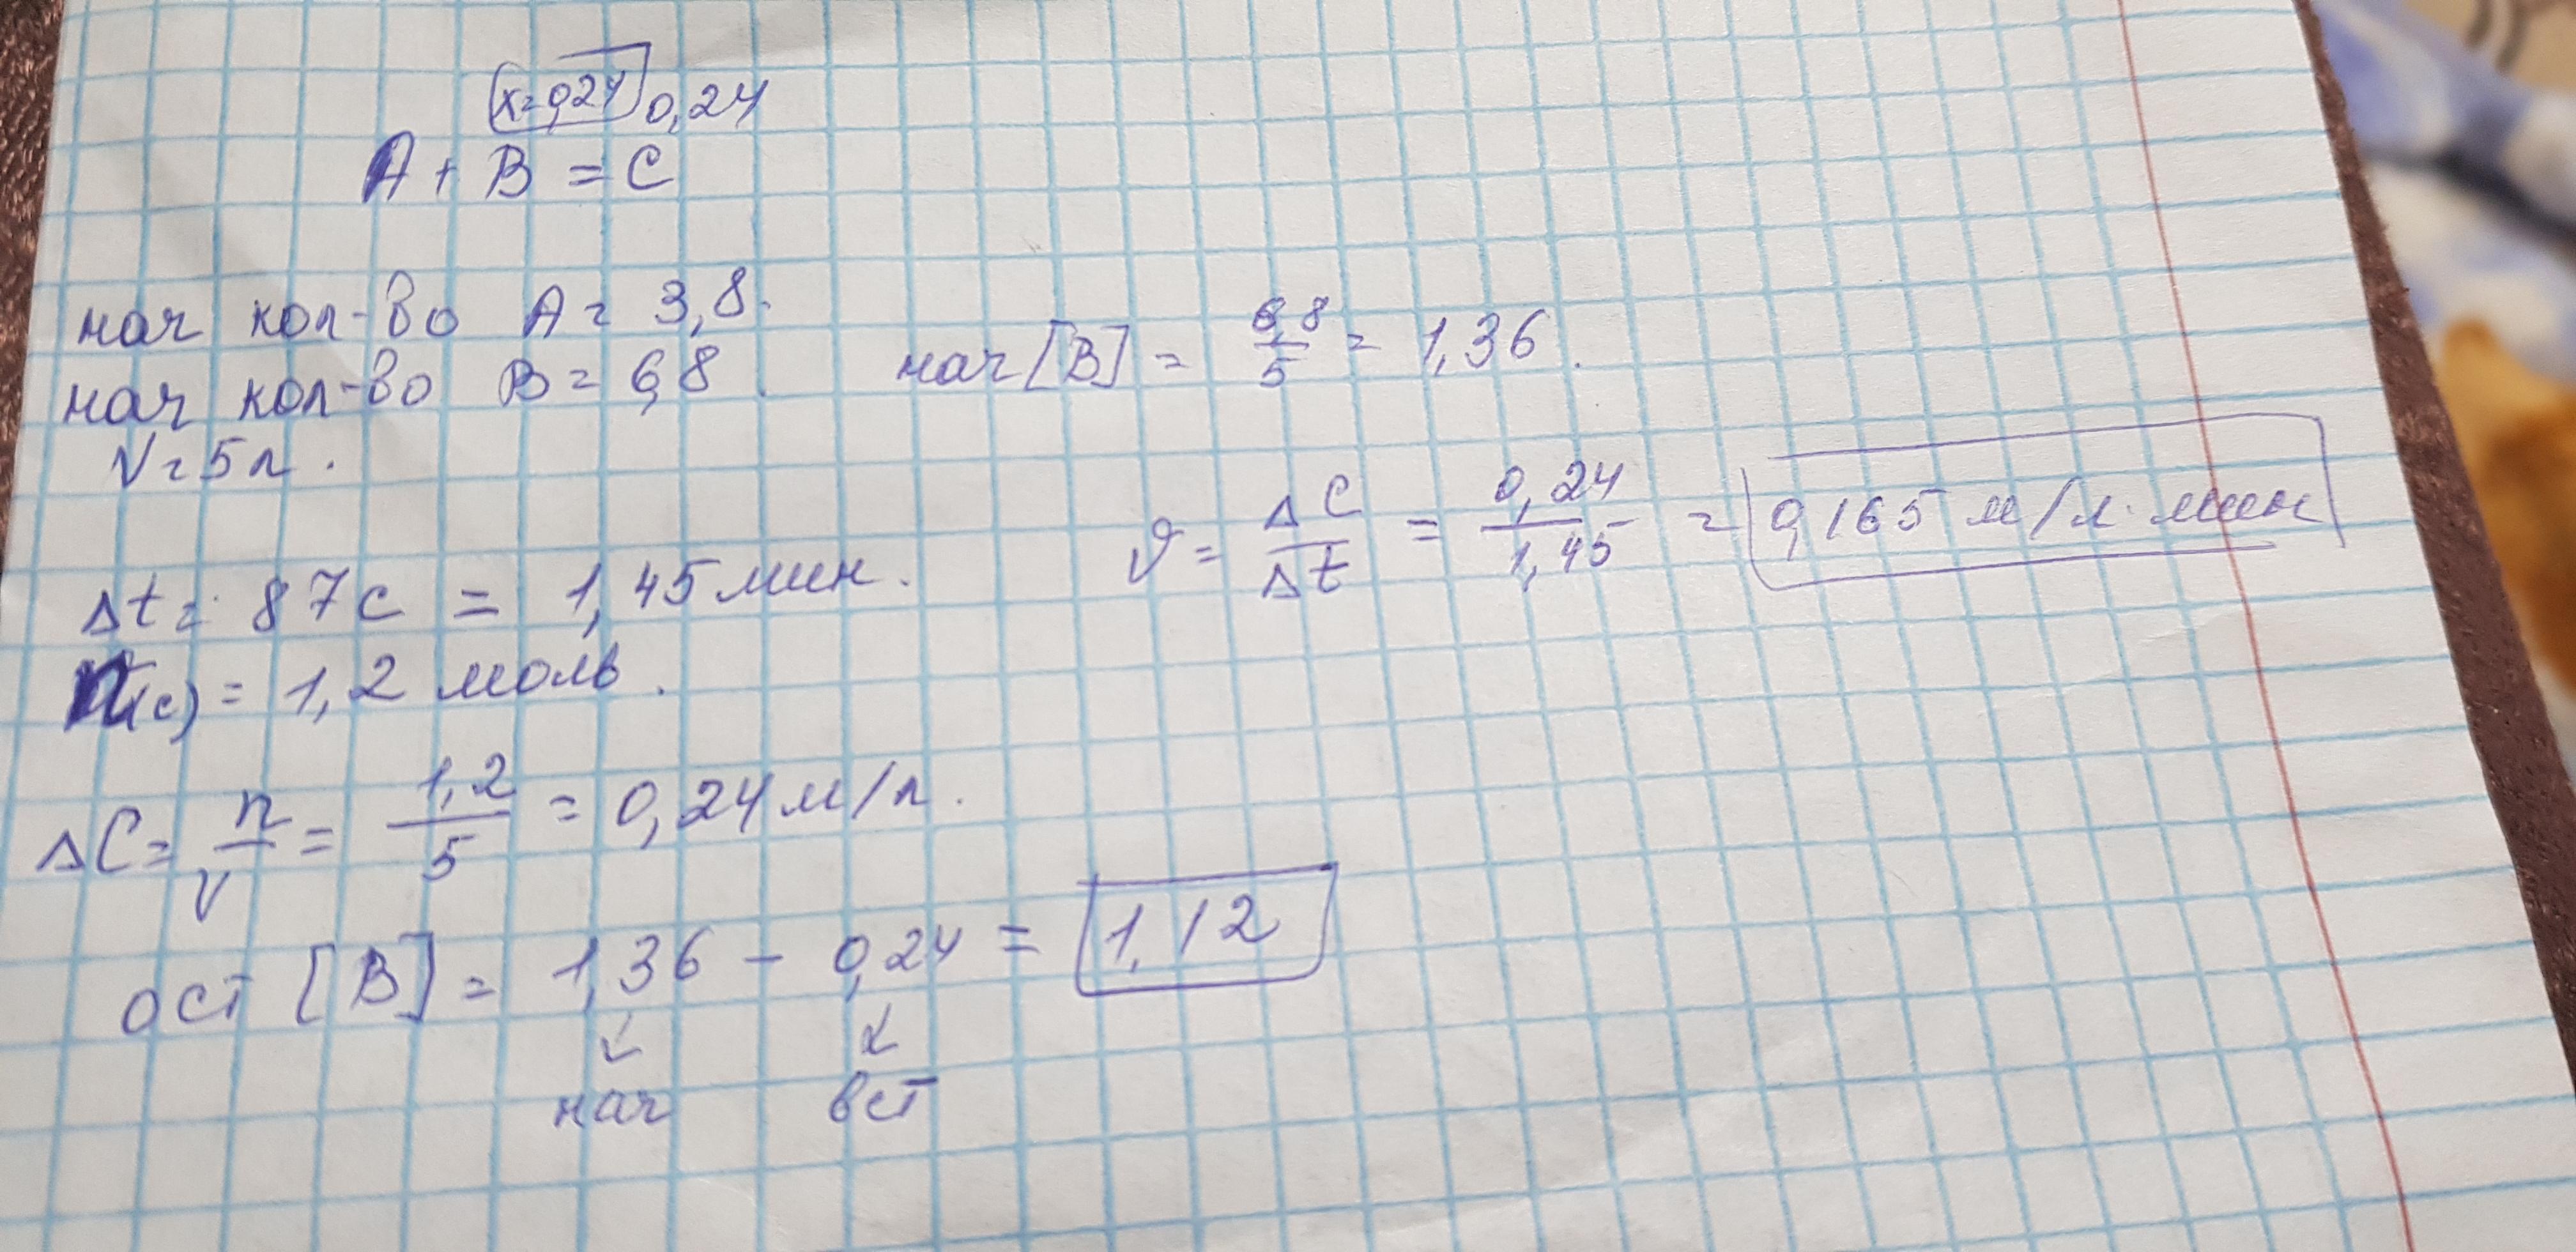 x=0,24 0,24
A + B = C
нач кол-во A = 3,8.
нач кол-во B = 6,8.
V=5л.
нач [B] = 6,8/5 = 1,36.
υ = ΔC/Δt = 0,24/1,45 = 0,165 м/л·мин
Δt = 87с = 1,45 мин.
n(c) = 1,2 моль.
ΔC = n/V = 1,2/5 = 0,24 м/л.
ост [B] = 1,36 - 0,24 = 1,12
нач вст